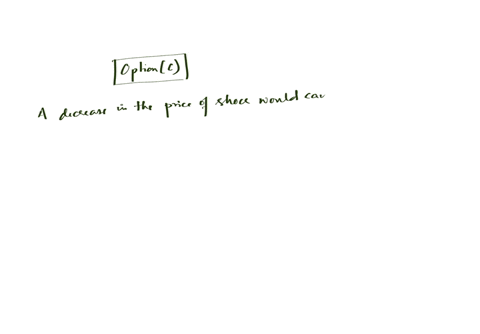 Option(c)
A decrease in the price of shoes would cau